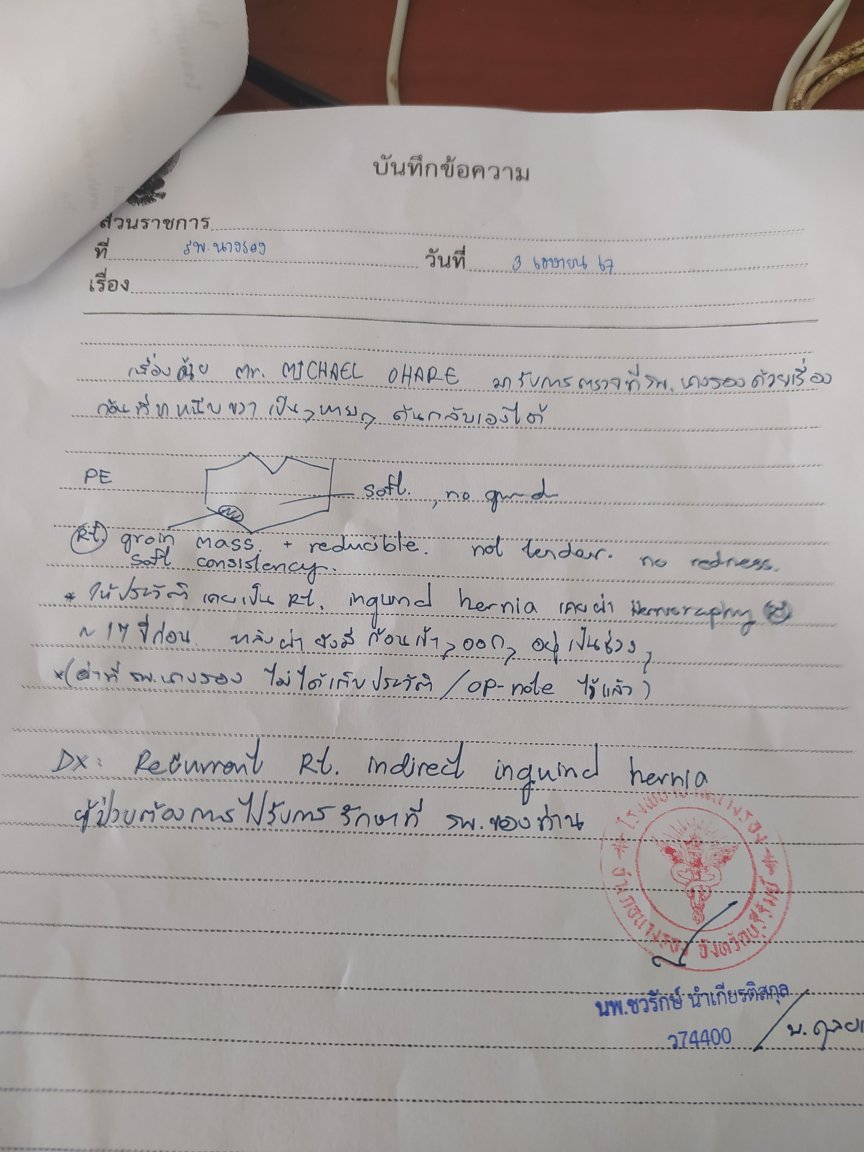 บันทึกข้อความ
ส่วนราชการ
ที่ รพ.นางรอง วันที่ 3 เมษายน 67
เรื่อง
เรื่องด้วย Mr. MICHAEL OHARE มารับการตรวจที่รพ.นางรองด้วยเรื่อง
ก้อนที่ขาหนีบขวา เป็นๆหายๆ ดันกลับเองได้
PE soft, no guard
Rt groin mass + reducible. not tender. no redness.
soft consistency.
* ให้ประวัติ เคยเป็น Rt. inguinal hernia เคยผ่า Herniorraphy
~ 17 ปีก่อน หลังผ่า ยังมี ก้อนเข้าๆออกๆ อยู่เป็นช่วงๆ
*(ผ่าที่ รพ.นางรอง ไม่ได้เก็บประวัติ / OP-note ไว้แล้ว)
DX: Recurrent Rt. indirect inguinal hernia
ผู้ป่วยต้องการไปรับการรักษาที่ รพ.ของท่าน
อำเภอนางรอง จังหวัดบุรีรัมย์
นพ.ชวรักษ์ นำเกียรติสกุล
ว74400